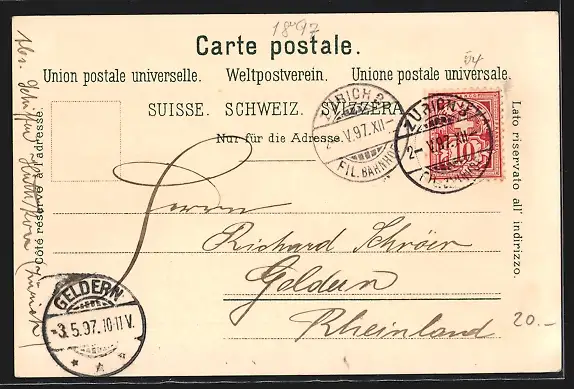 1897
Carte postale.
Union postale universelle. Weltpostverein. Unione postale universale.
SUISSE. SCHWEIZ. SVIZZERA
Nur für die Adresse.
Côté réservé à l'adresse.
Lato riservato all' indirizzo.
ZÜRICH
2-V.97.XII-
FIL. BAHNHOF
ZÜRICH
2-V.97.XII-
10
Herrn
Richard Schröer
Geldern
Rheinland
GELDERN
-3.5.97.10-11V.
20.-